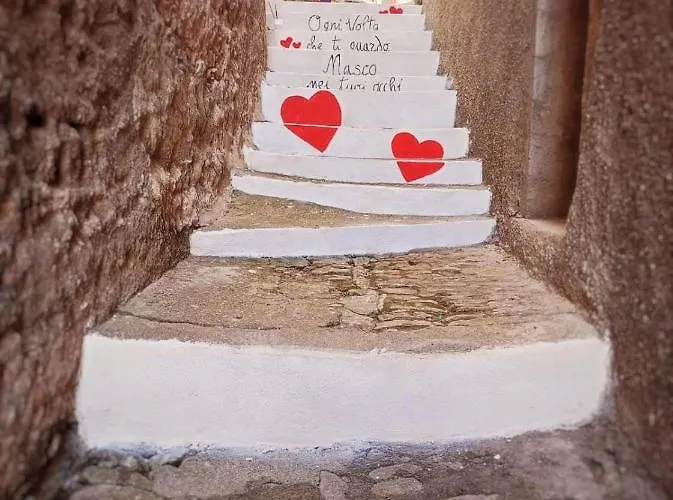 Ogni Volta
che ti guardo
Masco
nei tuoi occhi